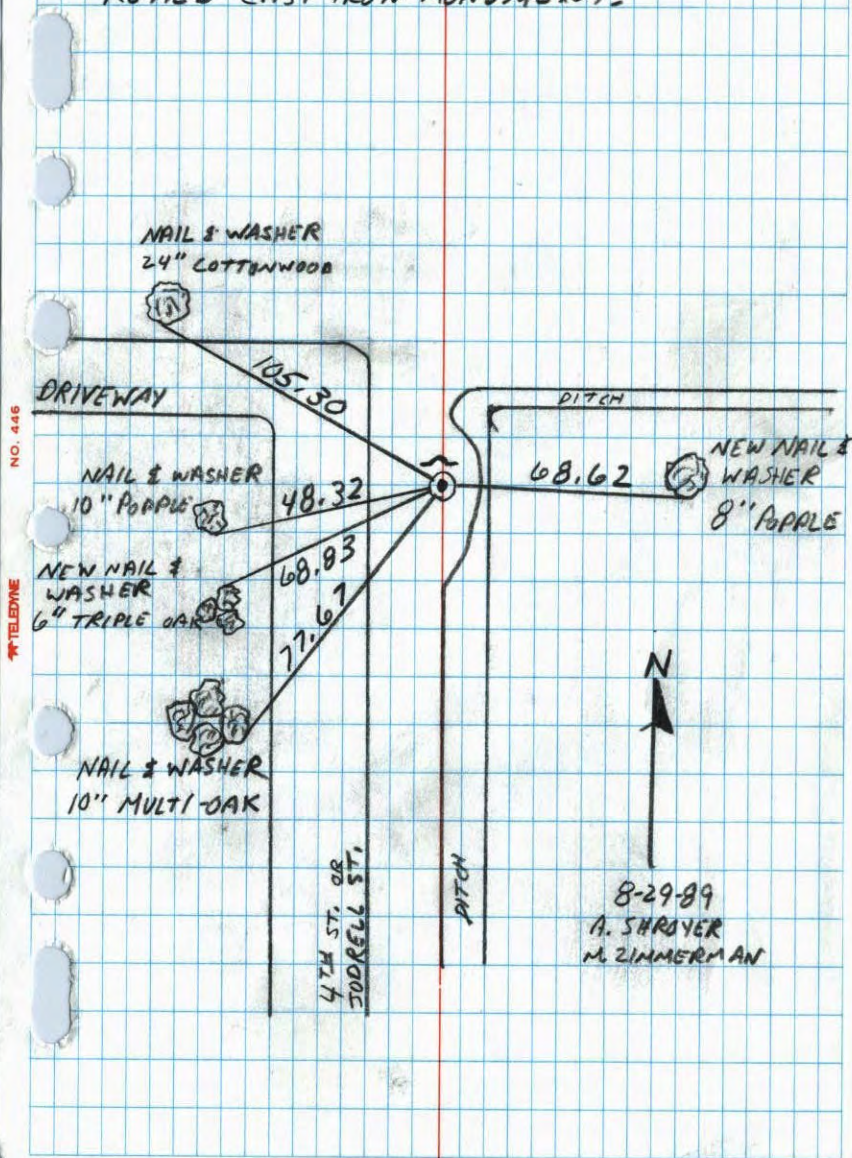 NAIL & WASHER
24" COTTONWOOD
105.30
DRIVEWAY
DITCH
NO. 446
NAIL & WASHER
10" POPPLE
48.32
68.62
NEW NAIL &
WASHER
8" POPPLE
NEW NAIL &
WASHER
6" TRIPLE OAK
68.83
77.67
TELEDYNE
N
NAIL & WASHER
10" MULTI-OAK
4TH ST. OR
JODRELL ST.
DITCH
8-29-89
A. SHROYER
M. ZIMMERMAN